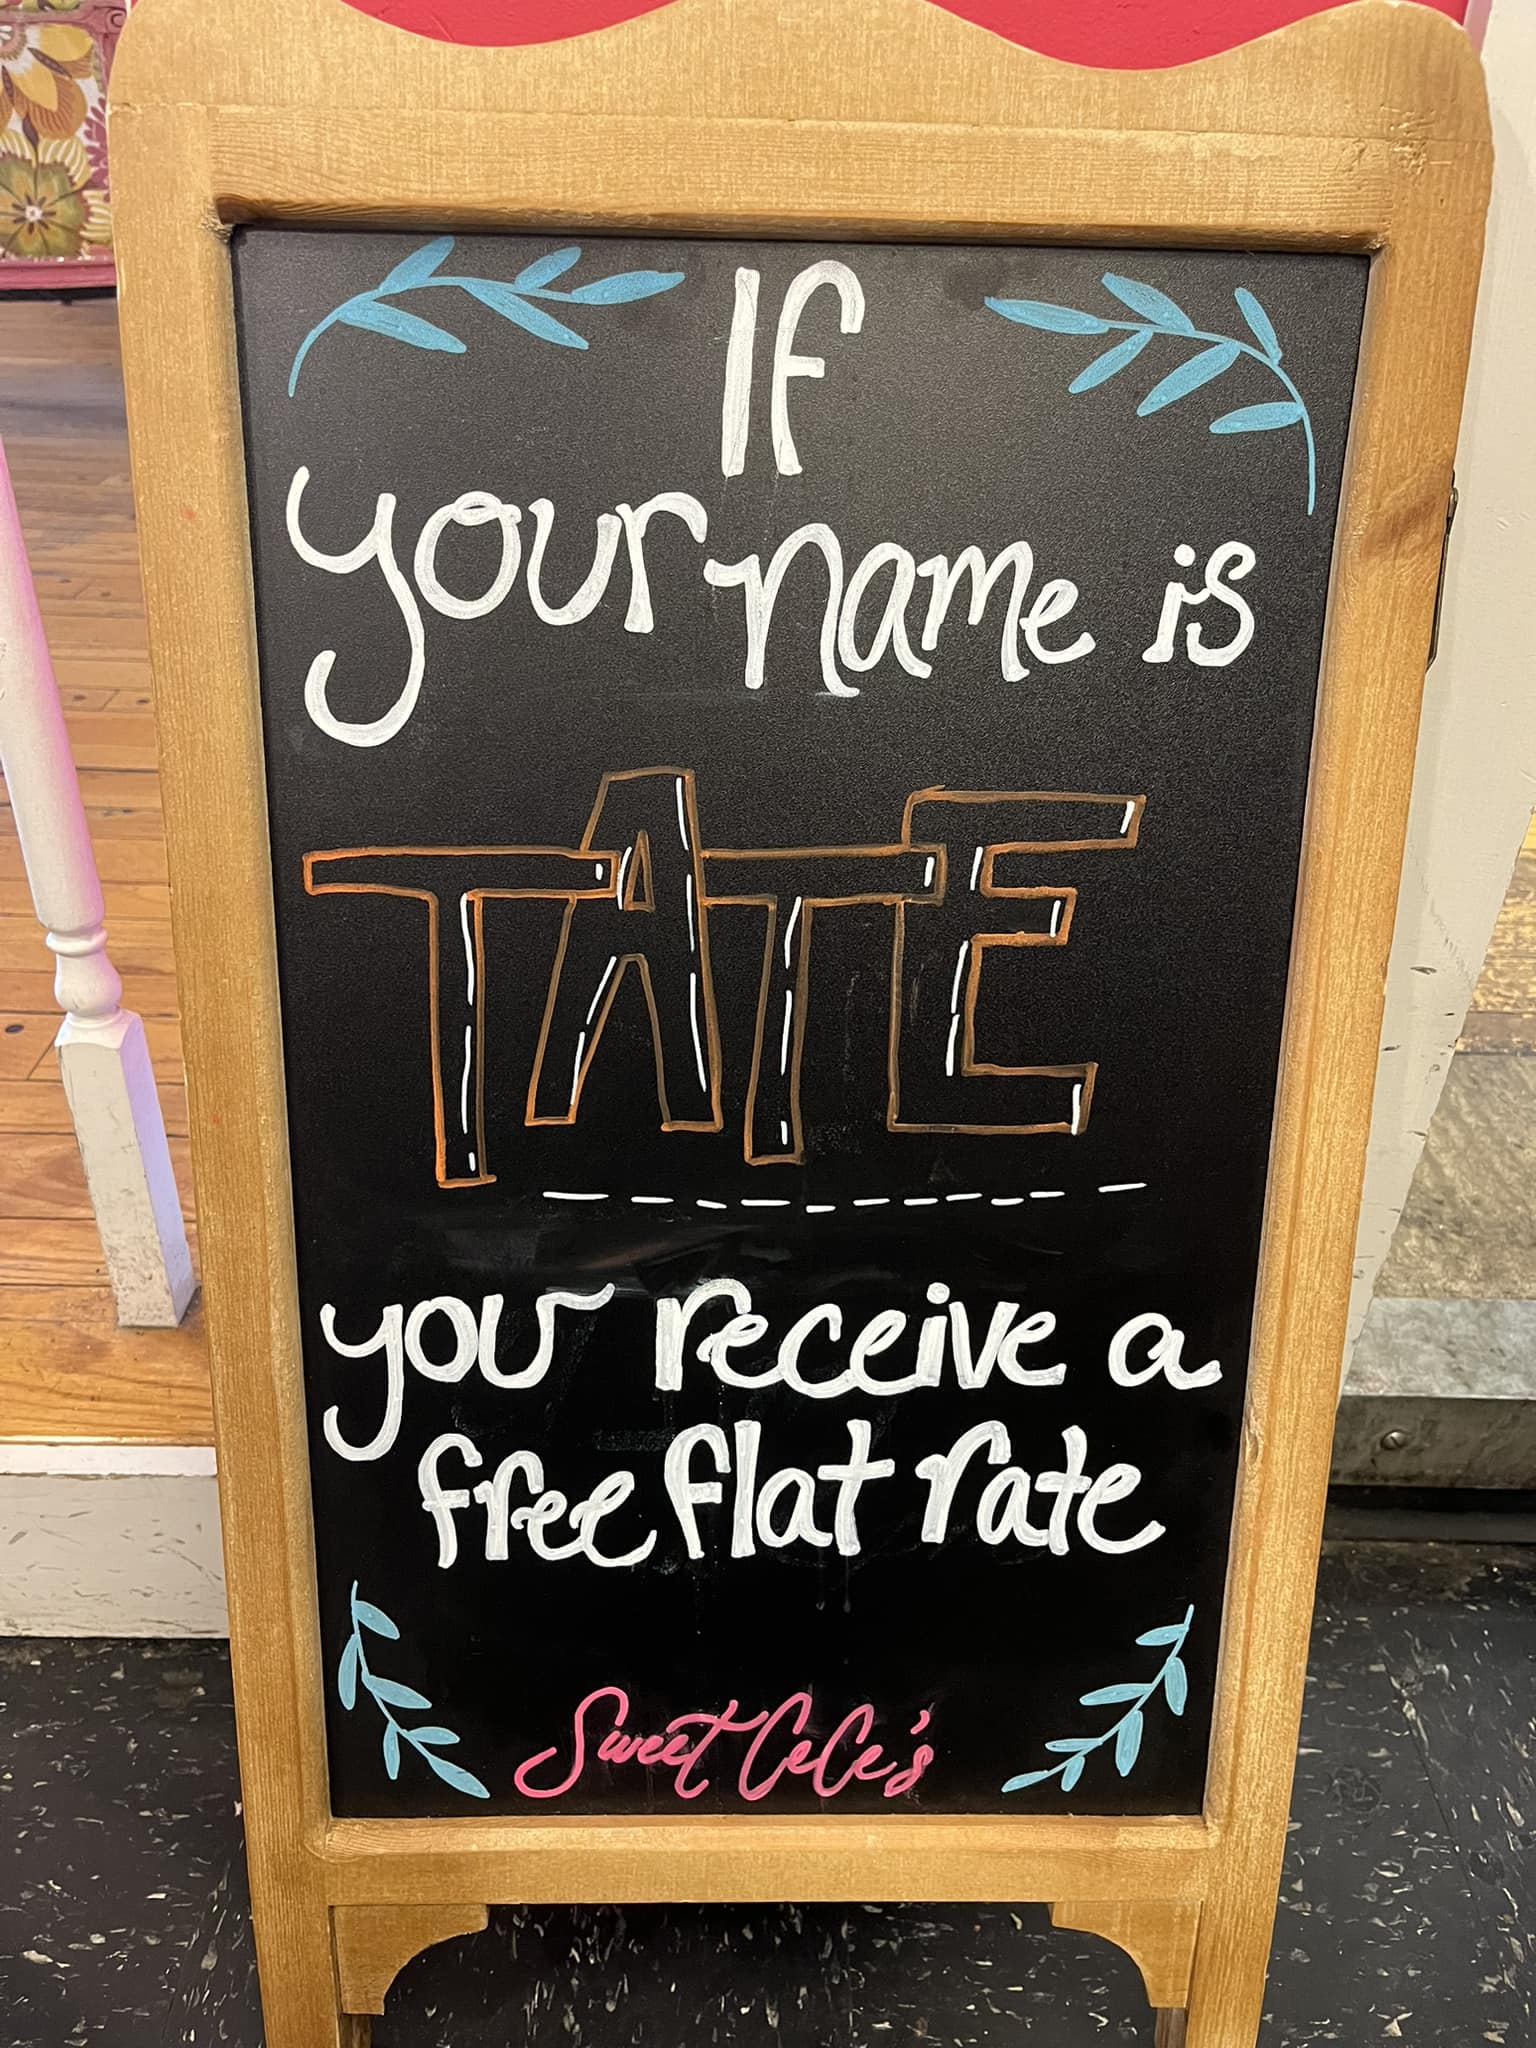 If
your name is
TATE
you receive a
free flat rate
Sweet CeCe's